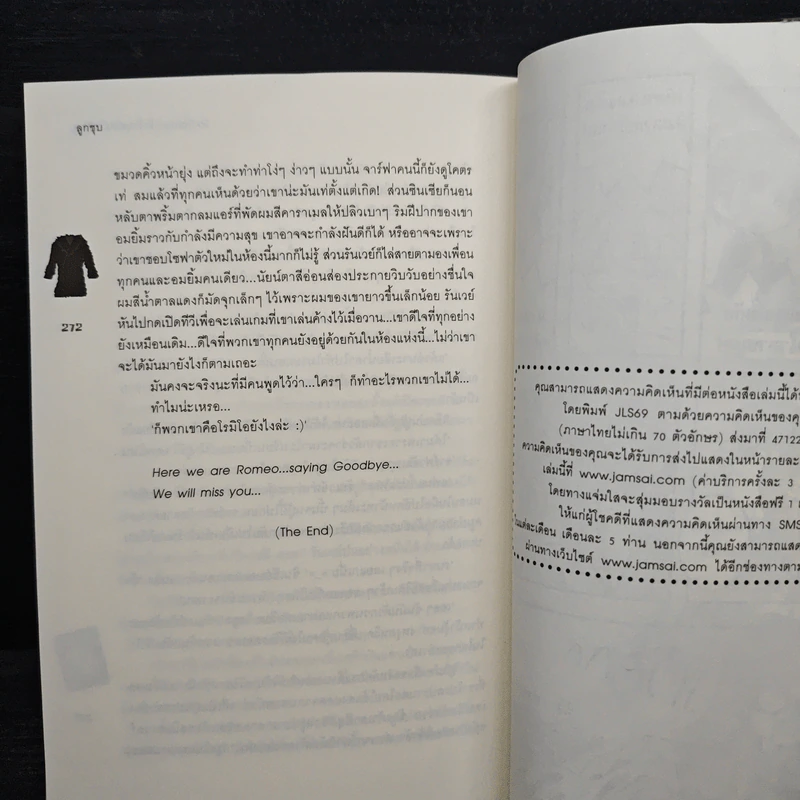 ลูกชุบ
ขมวดคิ้วหน้ายุ่ง แต่ถึงจะทำท่าโง่ๆ ง่าวๆ แบบนั้น จาร์ฟาคนนี้ก็ยังดูโคตร
เท่ สมแล้วที่ทุกคนเห็นด้วยว่าเขาน่ะมันเท่ตั้งแต่เกิด! ส่วนซินเซียก็นอน
หลับตาพริ้มตากลมแอร์ที่พัดผมสีคาราเมลให้ปลิวเบาๆ ริมฝีปากของเขา
อมยิ้มราวกับกำลังมีความสุข เขาอาจจะกำลังฝันดีก็ได้ หรืออาจจะเพราะ
ว่าเขาชอบโซฟาตัวใหม่ในห้องนี้มากก็ไม่รู้ ส่วนรันเวย์ก็ไล่สายตามองเพื่อน
ทุกคนและอมยิ้มคนเดียว...นัยน์ตาสีอ่อนส่องประกายวิบวับอย่างชื่นใจ
ผมสีน้ำตาลแดงก็มัดจุกเล็กๆ ไว้เพราะผมของเขายาวขึ้นเล็กน้อย รันเวย์
หันไปกดเปิดทีวีเพื่อจะเล่นเกมที่เขาเล่นค้างไว้เมื่อวาน...เขาดีใจที่ทุกอย่าง
ยังเหมือนเดิม...ดีใจที่พวกเขาทุกคนยังอยู่ด้วยกันในห้องแห่งนี้...ไม่ว่าเขา
จะได้มันมายังไงก็ตามเถอะ
มันคงจะจริงนะที่มีคนพูดไว้ว่า...ใครๆ ก็ทำอะไรพวกเขาไม่ได้...
ทำไมน่ะเหรอ...
'ก็พวกเขาคือโรมิโอยังไงล่ะ :)'
Here we are Romeo...saying Goodbye...
We will miss you...
(The End)
272
คุณสามารถแสดงความคิดเห็นที่มีต่อหนังสือเล่มนี้ได้
โดยพิมพ์ JLS69 ตามด้วยความคิดเห็นของคุ
(ภาษาไทยไม่เกิน 70 ตัวอักษร) ส่งมาที่ 47122
ความคิดเห็นของคุณจะได้รับการส่งไปแสดงในหน้ารายละ
เล่มนี้ที่ www.jamsai.com (ค่าบริการครั้งละ 3
โดยทางแจ่มใสจะสุ่มมอบรางวัลเป็นหนังสือฟรี 1
ให้แก่ผู้โชคดีที่แสดงความคิดเห็นผ่านทาง SMS
ในแต่ละเดือน เดือนละ 5 ท่าน นอกจากนี้คุณยังสามารถแสด
ผ่านทางเว็บไซต์ www.jamsai.com ได้อีกช่องทางตาม